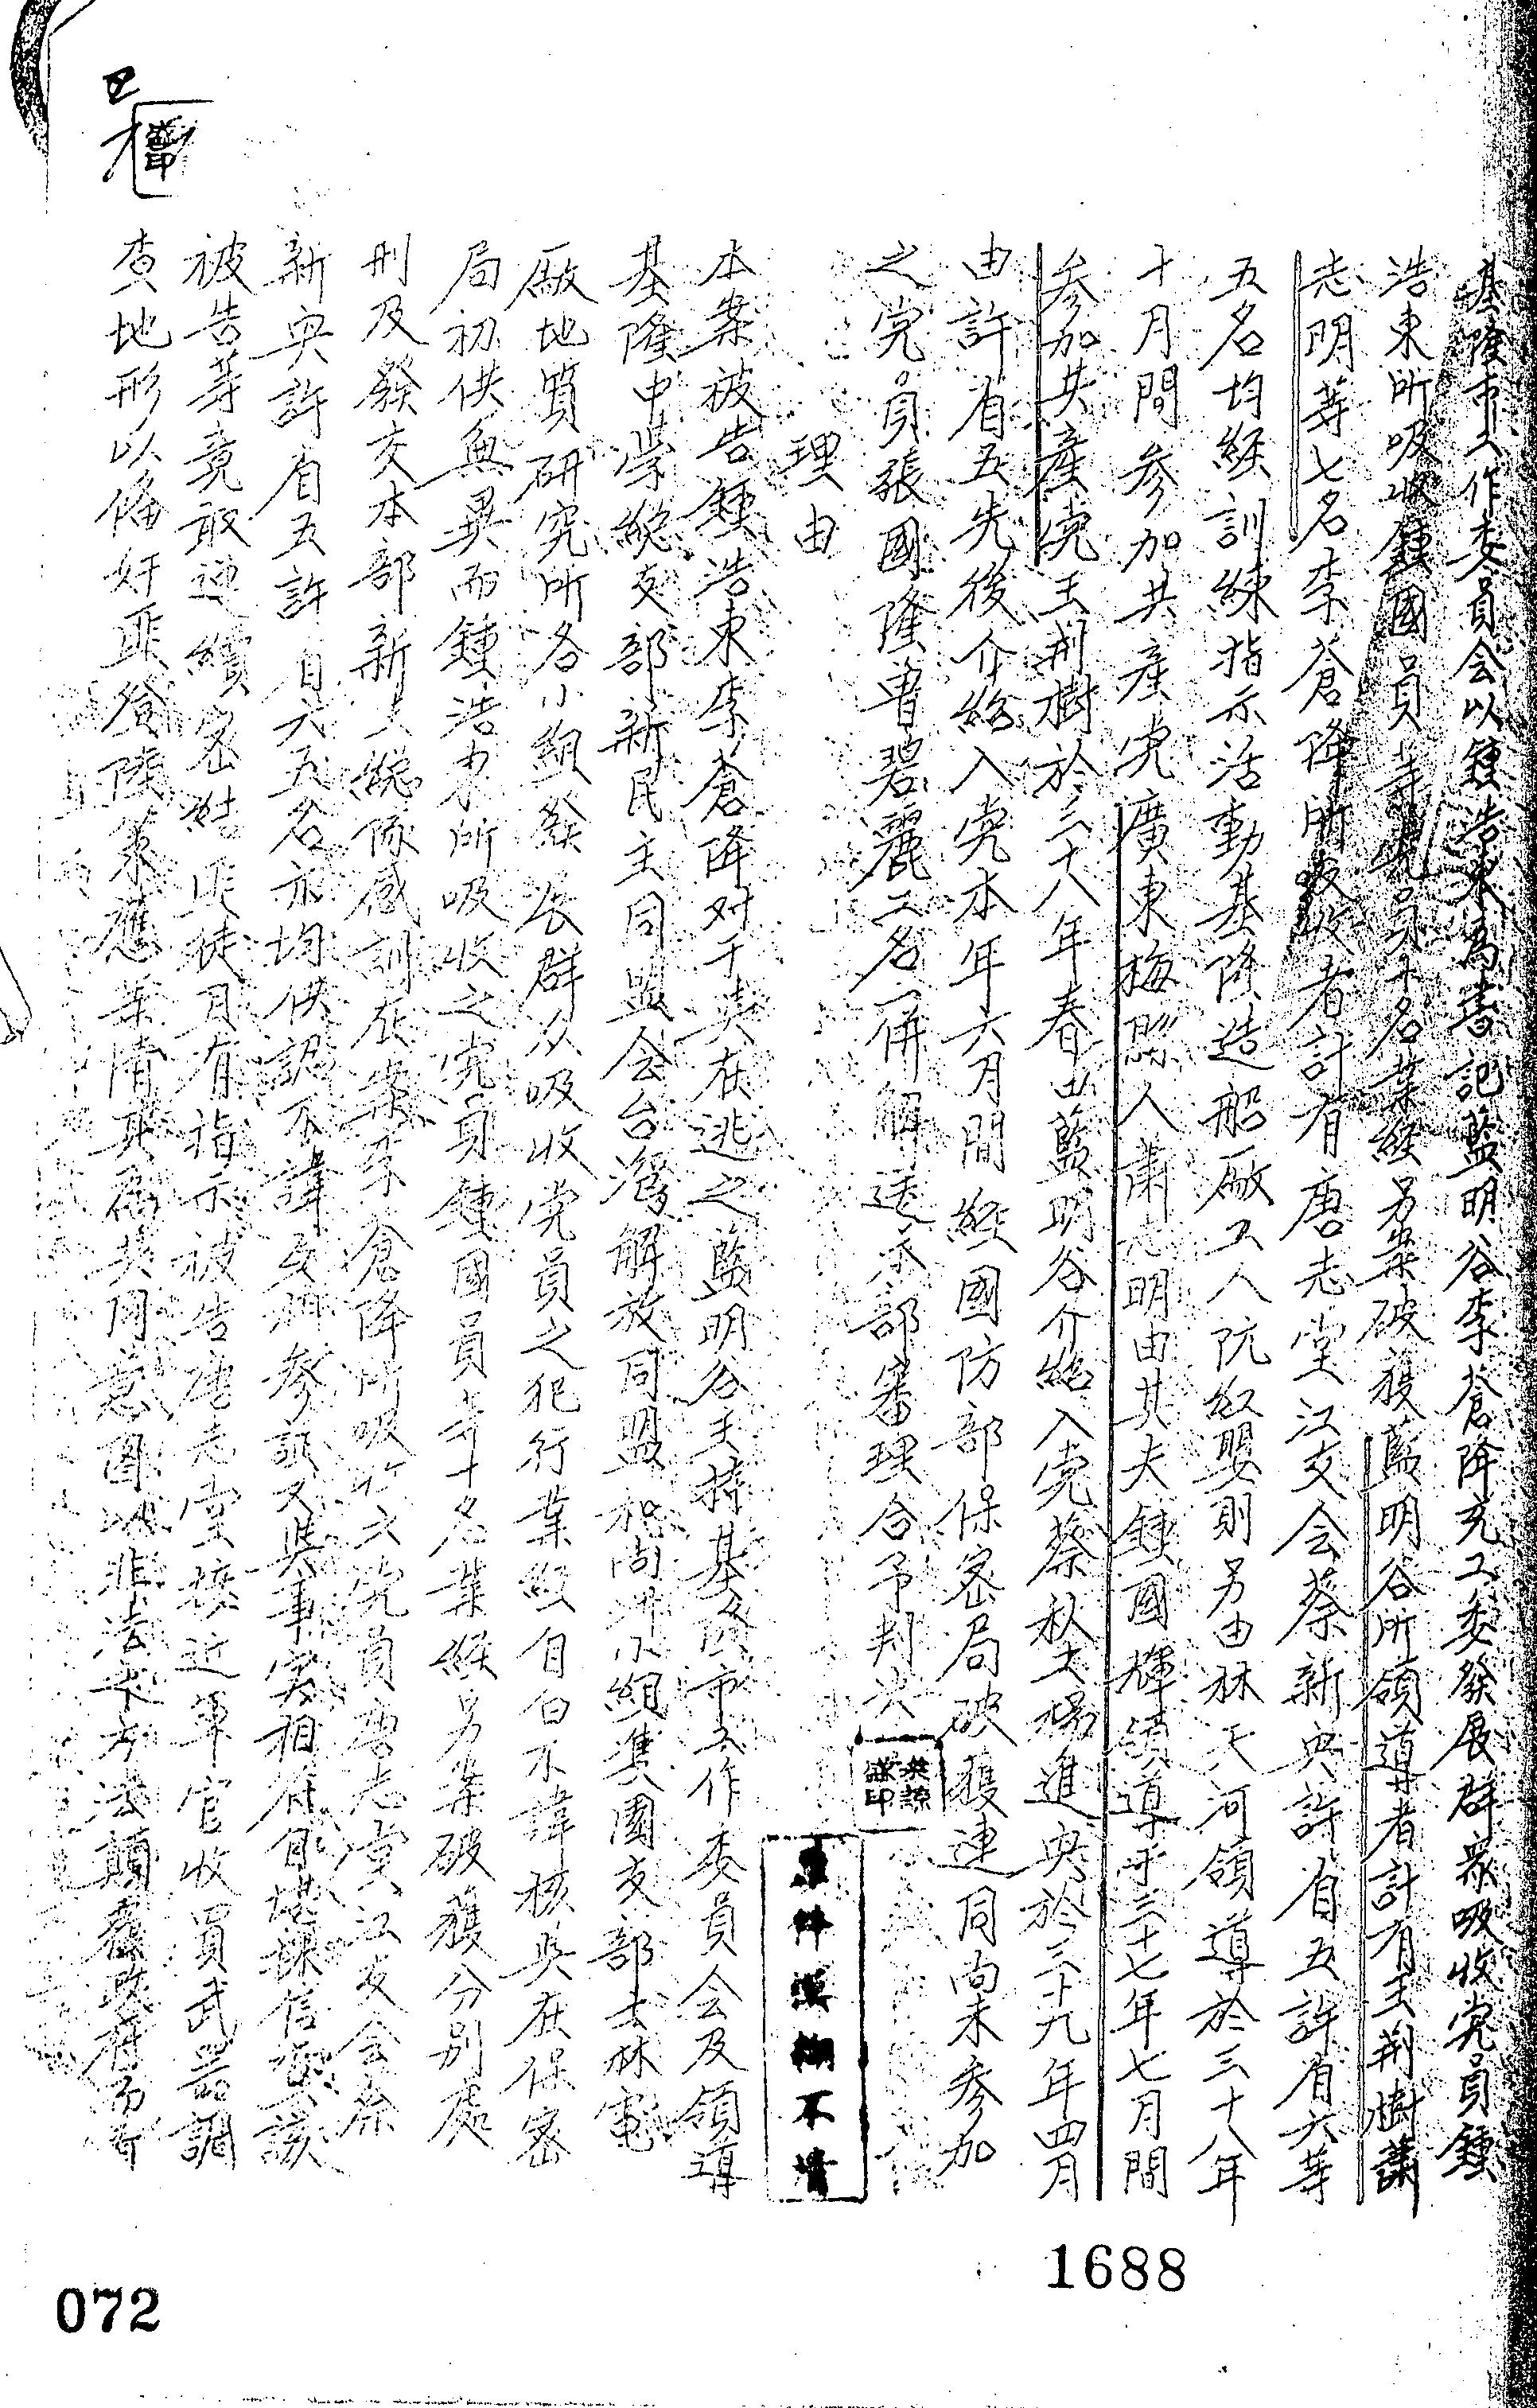 基隆市工作委員会以鍾浩東為書記藍明谷李蒼降充工委發展群眾吸收党員鍾
浩東所吸收鍾國員等党員十名業經另案破獲藍明谷所領導者計有王荆樹蕭
志明等七名李蒼降所吸收者計有唐志堂江支会蔡新興許省五許省六等
五名均經訓練指示活動基隆造船廠工人阮紅嬰則另由林天河領導於三十八年
十月間参加共産党廣東梅縣人蕭志明由其夫鍾國輝領導于三十七年七月間
参加共産党王荆樹於三十八年春由藍明谷介紹入党蔡秋土楊進興於三十九年四月
由許省五先後介紹入党本年六月間經國防部保密局破獲連同尚未参加
之党員張國隆曾碧麗二名一併解送本部審理合予判决
理由
本案被告鍾浩東李蒼降对于與在逃之藍明谷主持基隆市工作委員会及領導
基隆中學總支部新民主同盟会台灣解放同盟和尚洲小組桃園支部士林電
廠地質研究所各小組發展群众吸收党員之犯行業經自白不諱核與在保密
局初供無異而鍾浩東所吸收之党員鍾國員等十名業經另案破獲分別處
刑及發交本部新人總隊感訓在案李蒼降所吸收之党員唐志堂江支会蔡
新興許省五許省六五名亦均供認不諱互相参証又與事實相符自堪採信按該
被告等竟敢連續密結匪徒 有指示被告唐志堂接近軍官收買武器調
查地形以俻奸匪登陸策應 情 共同意圖以非法之方法顛覆政府而着
原件模糊不清
1688
072